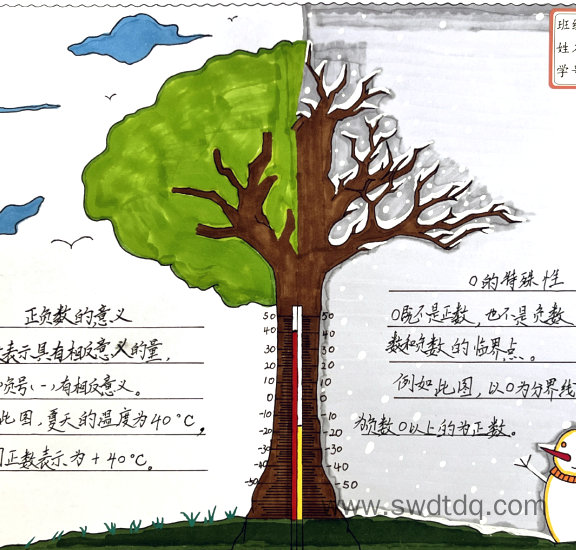 班
姓
学号
正负数的意义
表示具有相反意义的量,
负号(-)有相反意义。
此图,夏天的温度为40°C,
正数表示为+40°C。
0的特殊性
0既不是正数,也不是负数
数和负数的临界点。
例如此图,以0为分界线
为负数0以上的为正数。
50 50
40 40
30 30
20 20
10 10
0 0
-10 -10
-20 -20
-30 -30
-40 -40
-50 -50
www.swdtdq.com